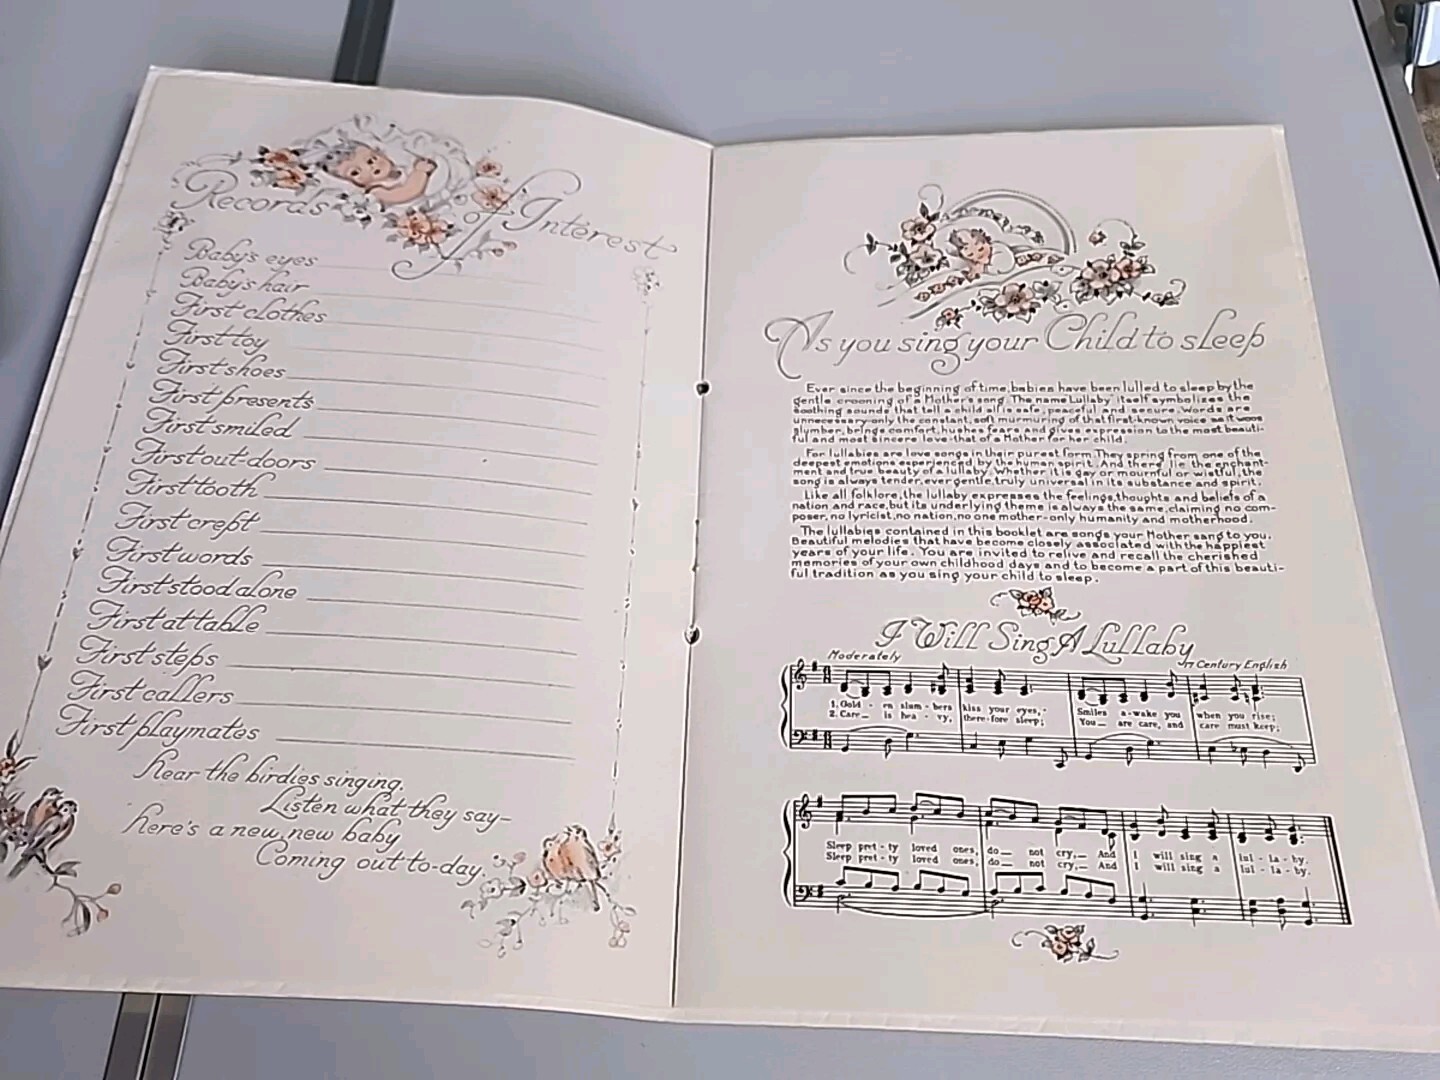 Records of Interest
Baby's eyes
Baby's hair
First clothes
First toy
First shoes
First presents
First smiled
First out-doors
First tooth
First crept
First words
First stood alone
First at table
First steps
First callers
First playmates
Hear the birdies singing.
Listen what they say-
Here's a new, new baby
Coming out to-day.
As you sing your Child to sleep
Ever since the beginning of time, babies have been lulled to sleep by the
gentle crooning of a Mother's song. The name Lullaby itself symbolizes the
soothing sounds that tell a child all is safe, peaceful and secure. Words are
unnecessary-only the constant, soft murmuring of that first-known voice
slumber, brings comfort, hushes fears and gives expression to the most beauti-
ful and most sincere love-that of a Mother for her child.
For lullabies are love songs in their purest form. They spring from one of the
deepest emotions experienced by the human spirit. And there lie the enchant-
ment and true beauty of a lullaby. Whether it is gay or mournful or wistful, the
song is always tender, ever gentle, truly universal in its substance and spirit.
Like all folklore, the lullaby expresses the feelings, thoughts and beliefs of a
nation and race, but its underlying theme is always the same, claiming no com-
poser, no lyricist, no nation, no one mother-only humanity and motherhood.
The lullabies contained in this booklet are songs your Mother sang to you.
Beautiful melodies that have become closely associated with the happiest
years of your life. You are invited to relive and recall the cherished
memories of your own childhood days and to become a part of this beauti-
ful tradition as you sing your child to sleep.
I Will Sing A Lullaby
Moderately
17 Century English
1. Gold - en slum - bers kiss your eyes, - Smiles a - wake you when you rise;
2. Care is hea - vy, there - fore sleep; You are care, and care must keep;
Sleep pret - ty loved ones, do not cry, And I will sing a lul - la - by.
Sleep pret - ty loved ones, do not cry, And I will sing a lul - la - by.